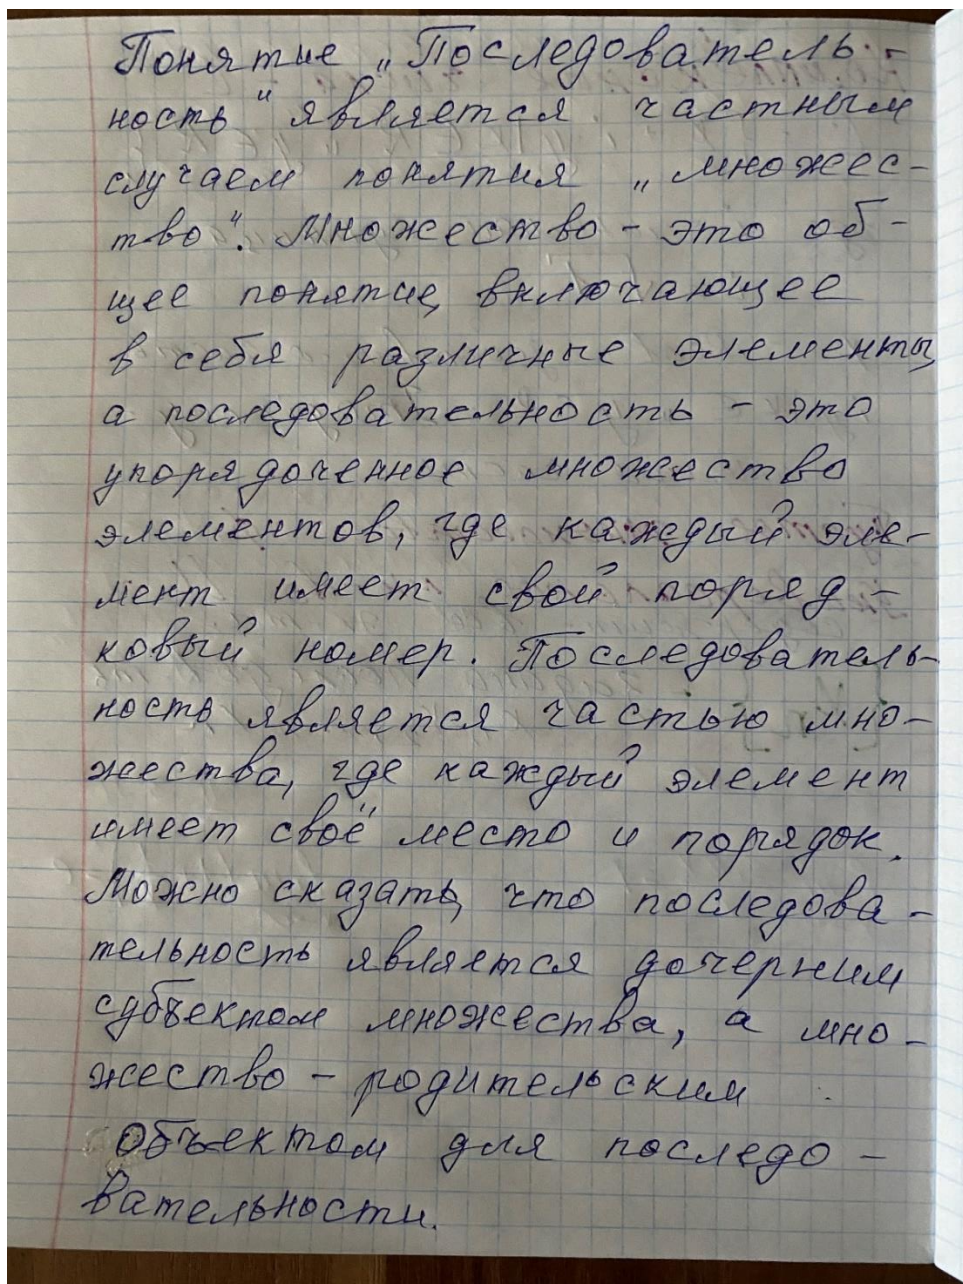 Понятие „Последователь-
ность" является частным
случаем понятия „множес-
тво". Множество - это об-
щее понятие, включающее
в себя различные элементы,
а последовательность - это
упорядоченное множество
элементов, где каждый эле-
мент имеет свой поряд-
ковый номер. Последователь-
ность является частью мно-
жества, где каждый элемент
имеет своё место и порядок.
Можно сказать, что последова-
тельность является дочерним
субъектом множества, а мно-
жество - родительским
объектом для последо-
вательности.